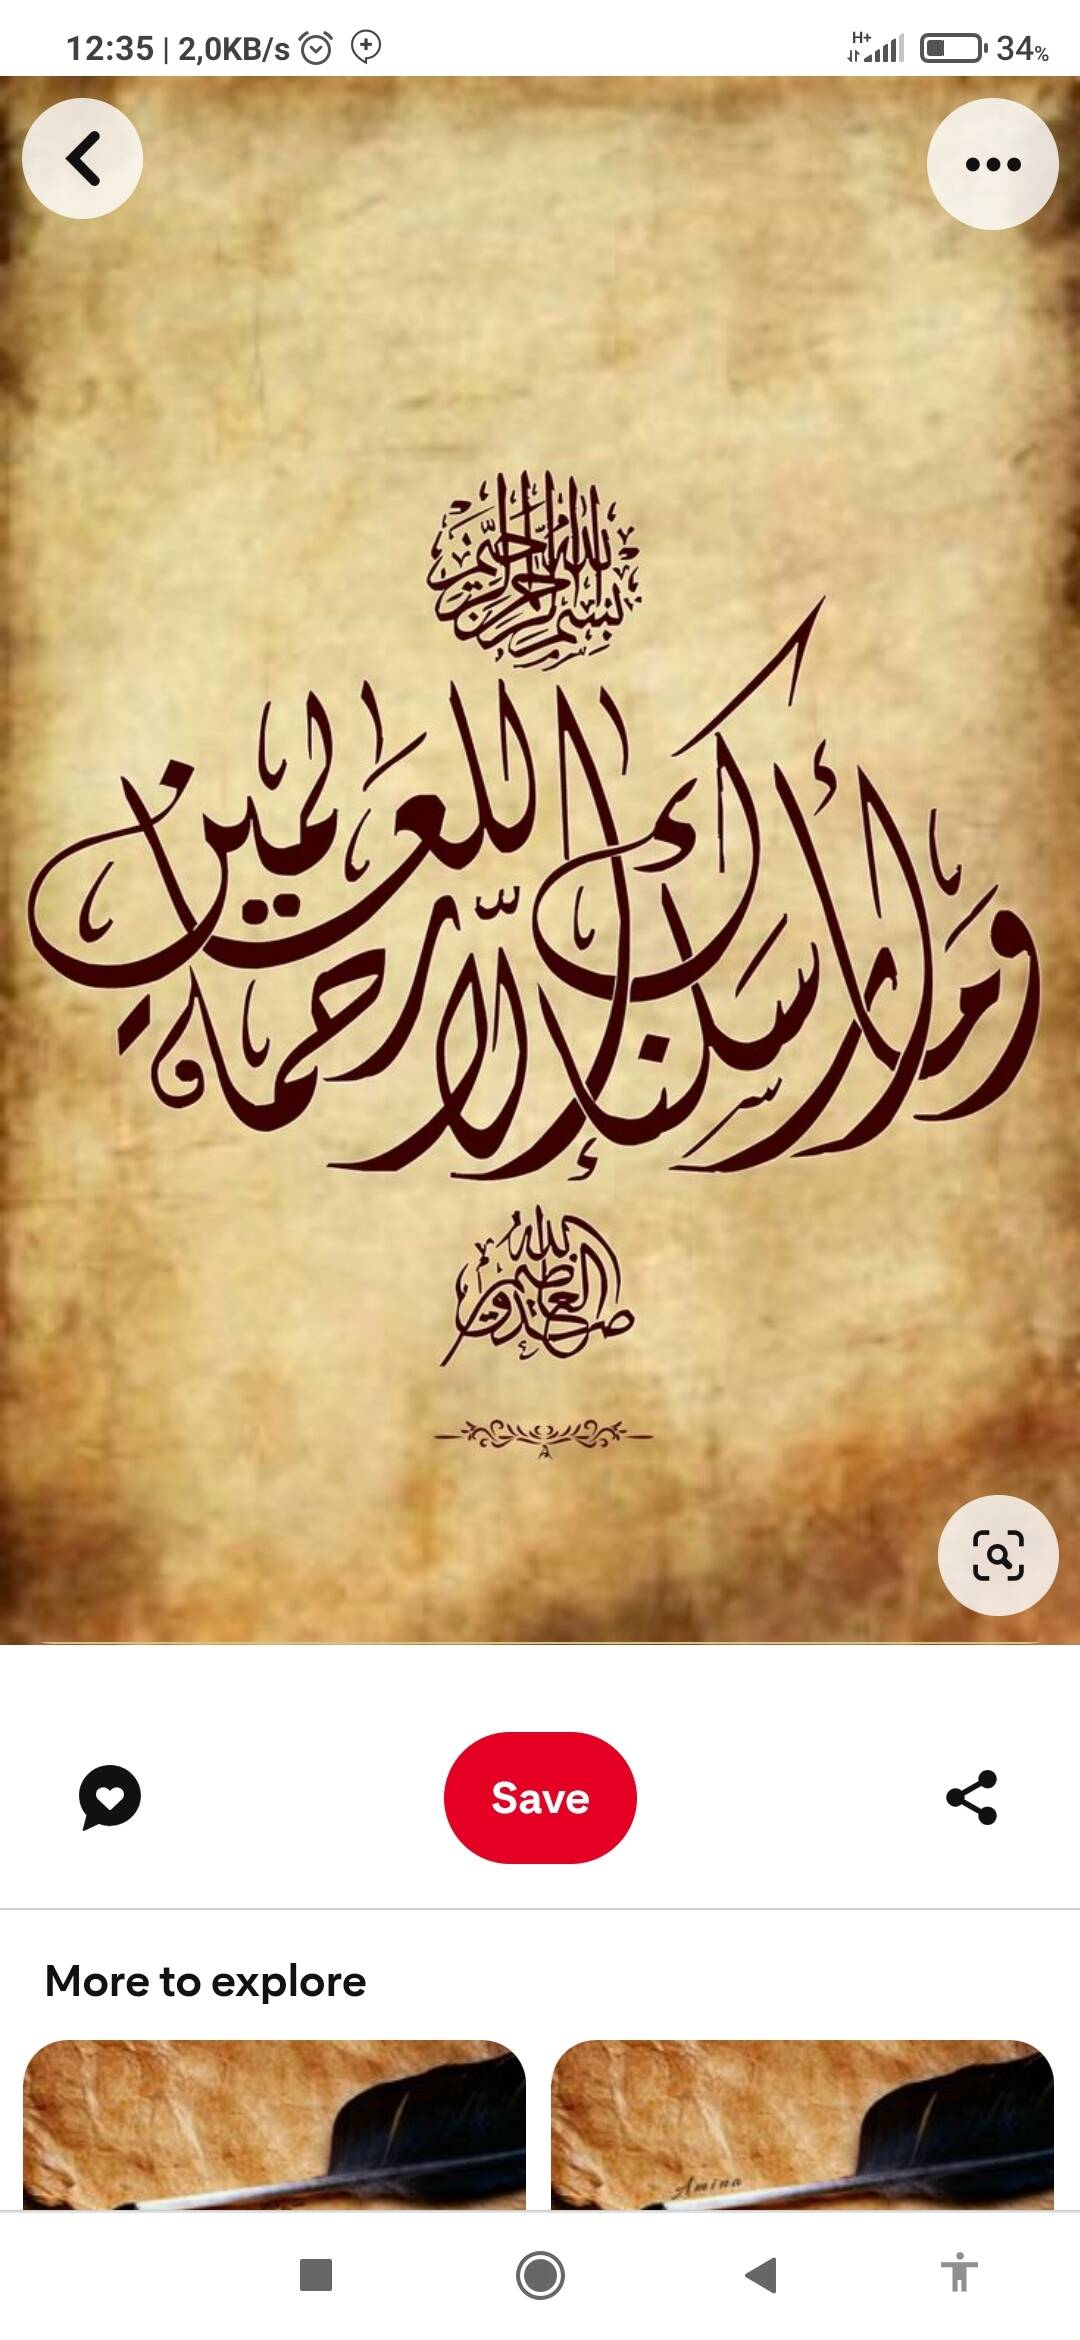 12:35 | 2,0KB/s
H+
34%
بسم الله الرحمن الرحيم
وما أرسلناك إلا رحمة للعالمين
صدق الله العظيم
Save
More to explore
Amina